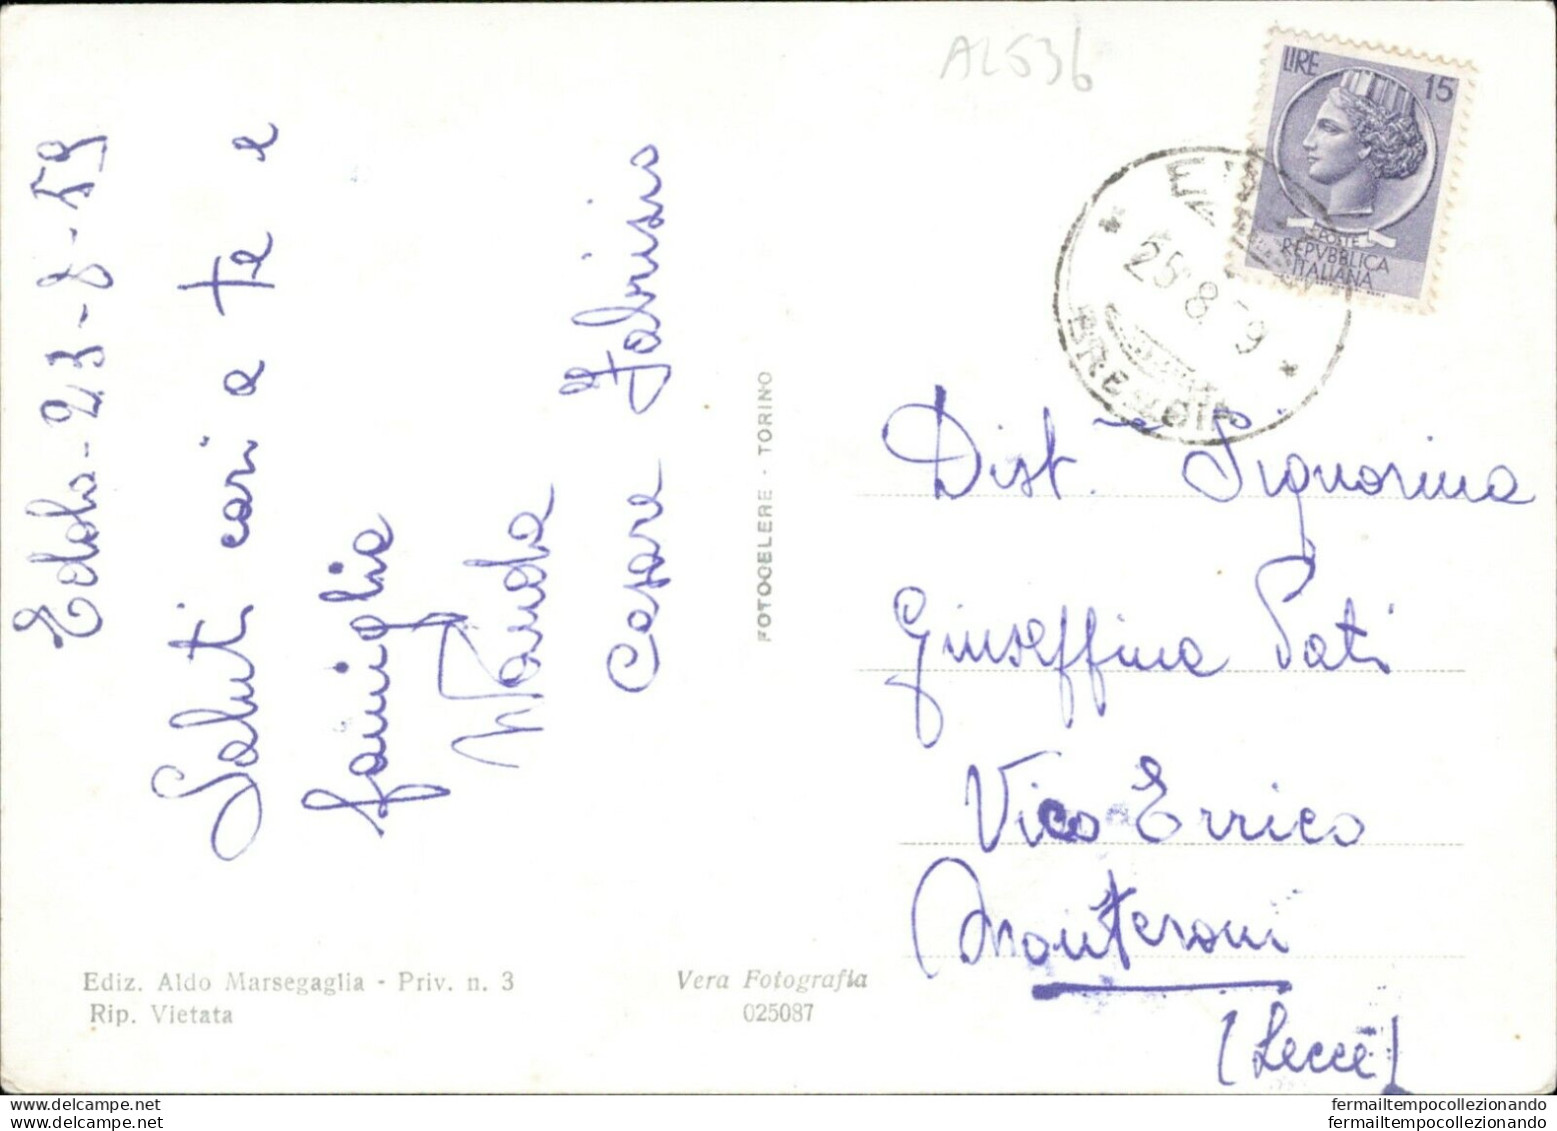 AL536
LIRE 15
POSTE
REPVBBLICA
ITALIANA
25 8
Edolo - 23 - 8 - 59
Saluti cari a te e
famiglia
Wanda
Cesare Fabrizio
FOTOCELERE - TORINO
Dist. Signorina
Giuseffina Pati
Vico Errico
Monteroni
(Lecce)
Ediz. Aldo Marsegaglia - Priv. n. 3
Rip. Vietata
Vera Fotografia
025087
fermailtempocollezionando
fermailtempocollezionando
fermailtempocollezionando
fermailtempocollezionando